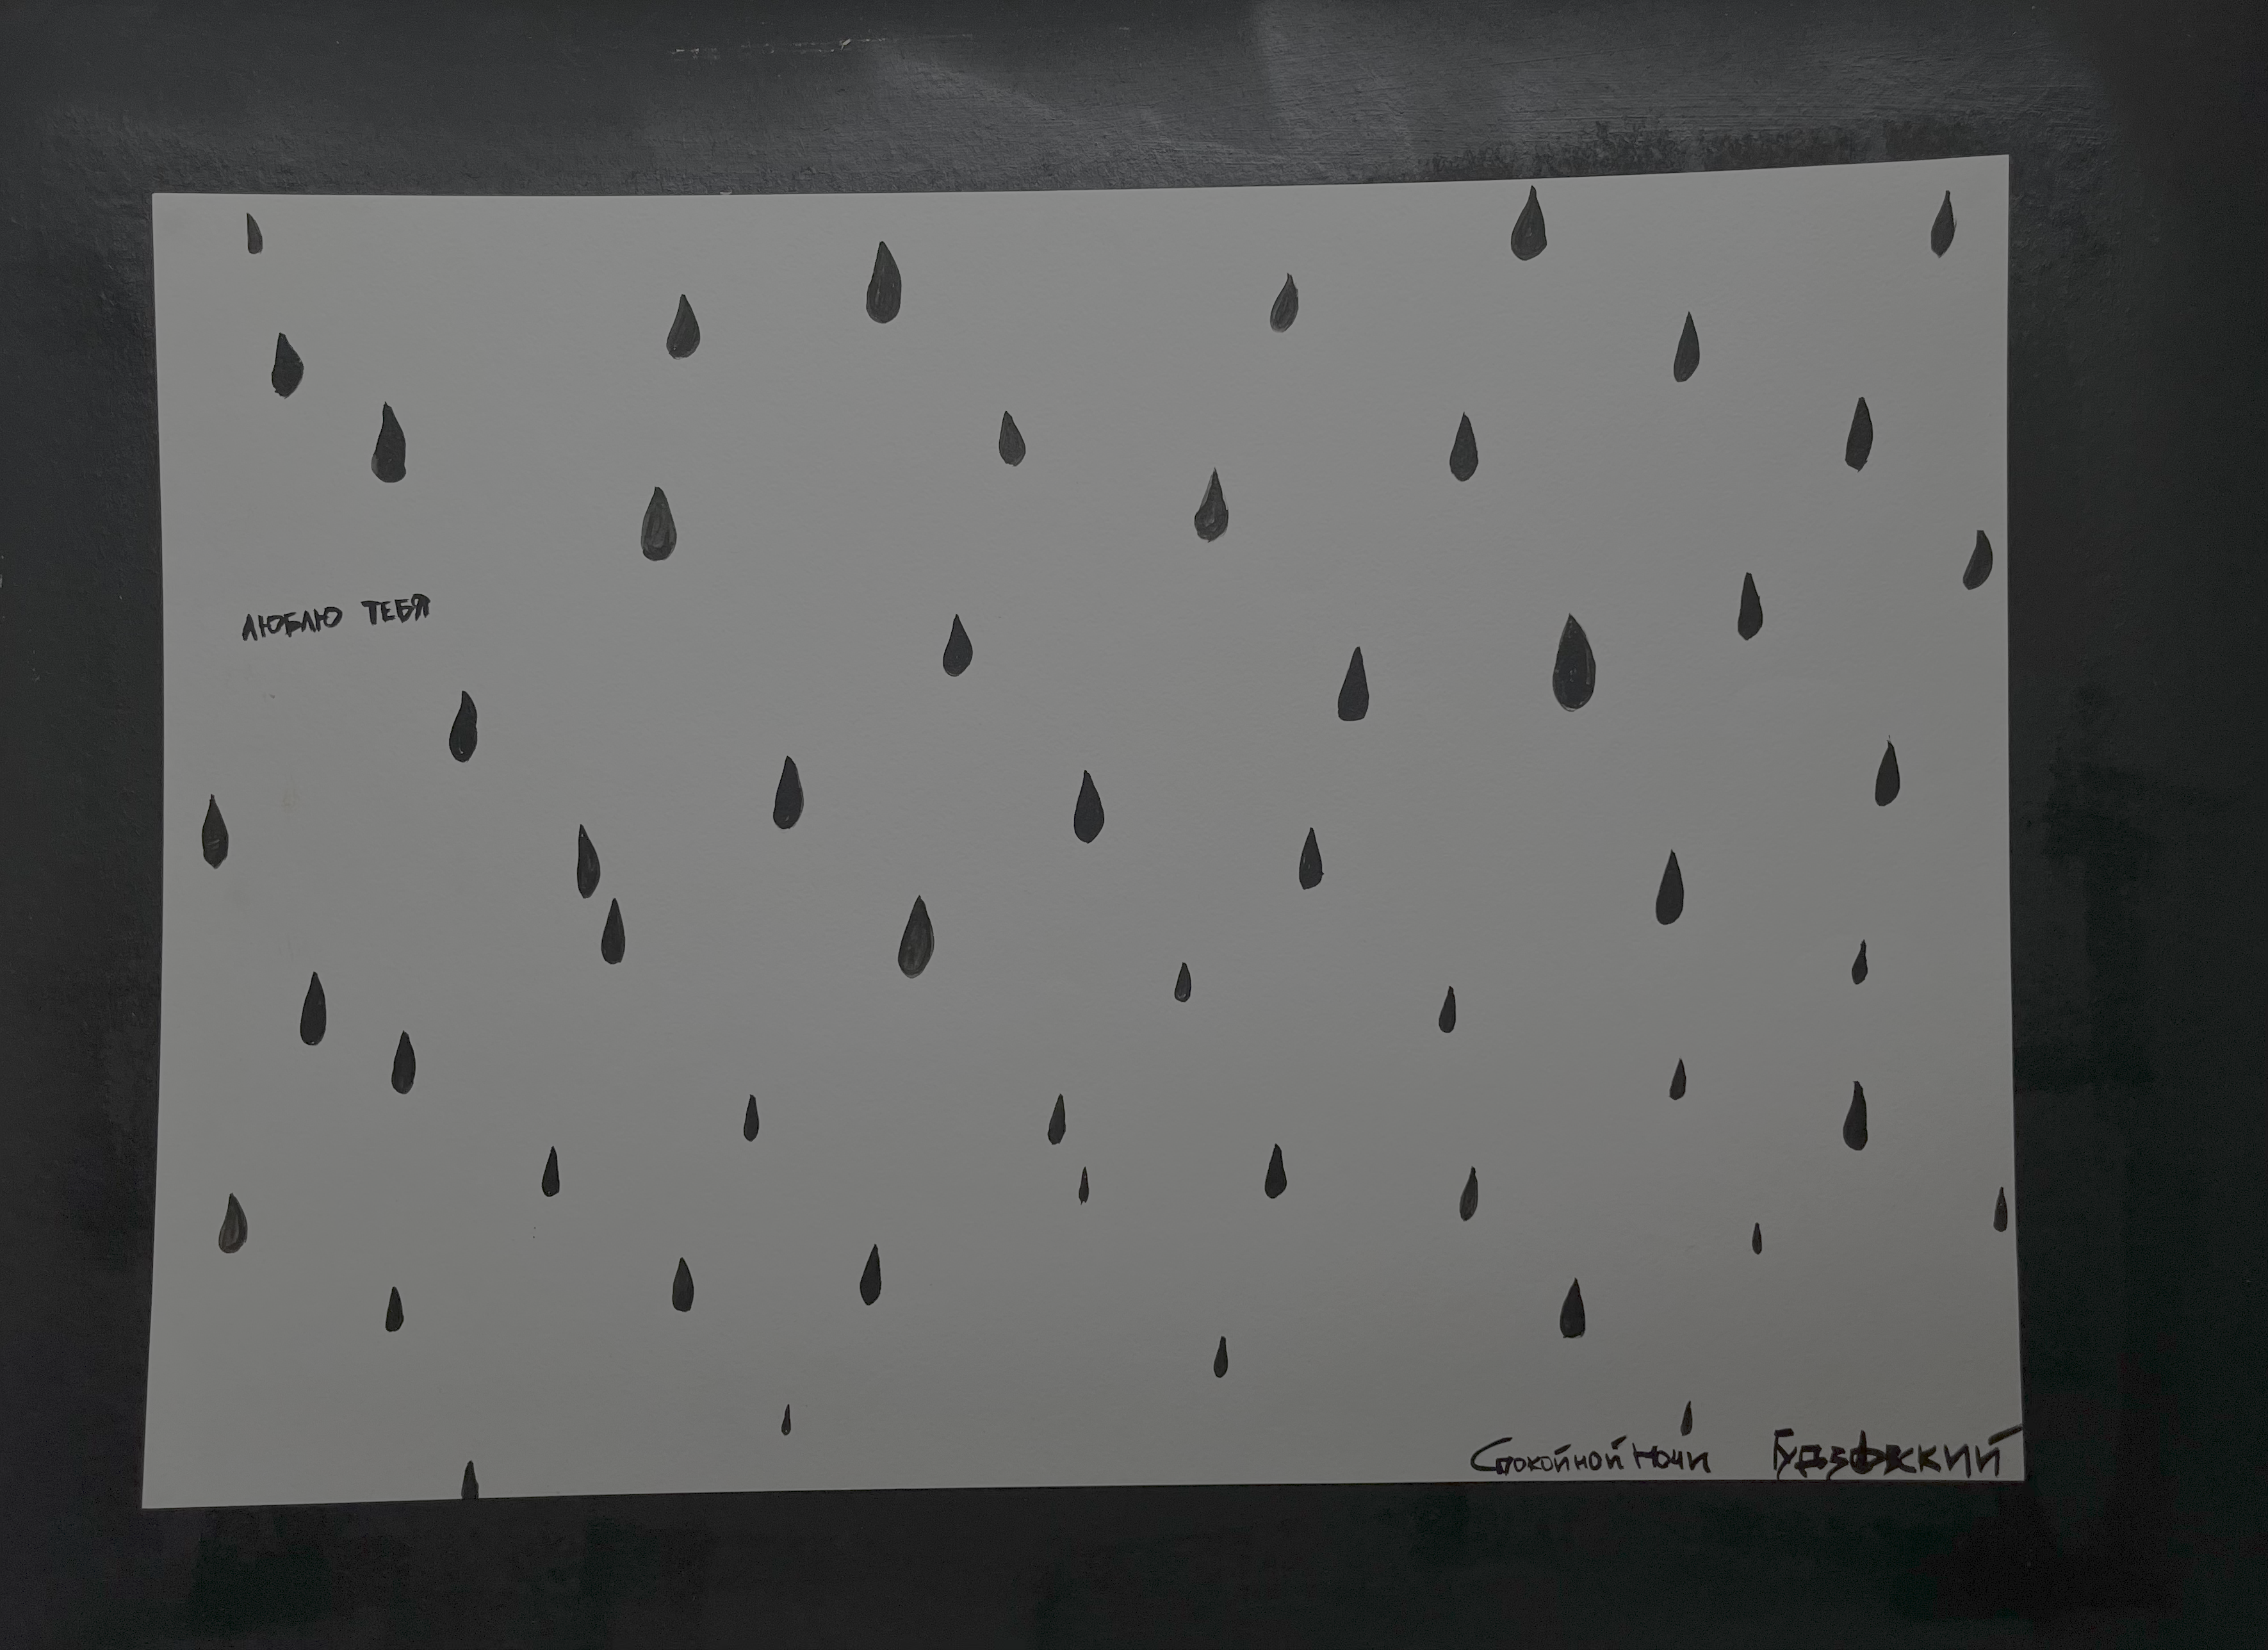 ЛЮБЛЮ ТЕБЯ
Спокойной Ночи